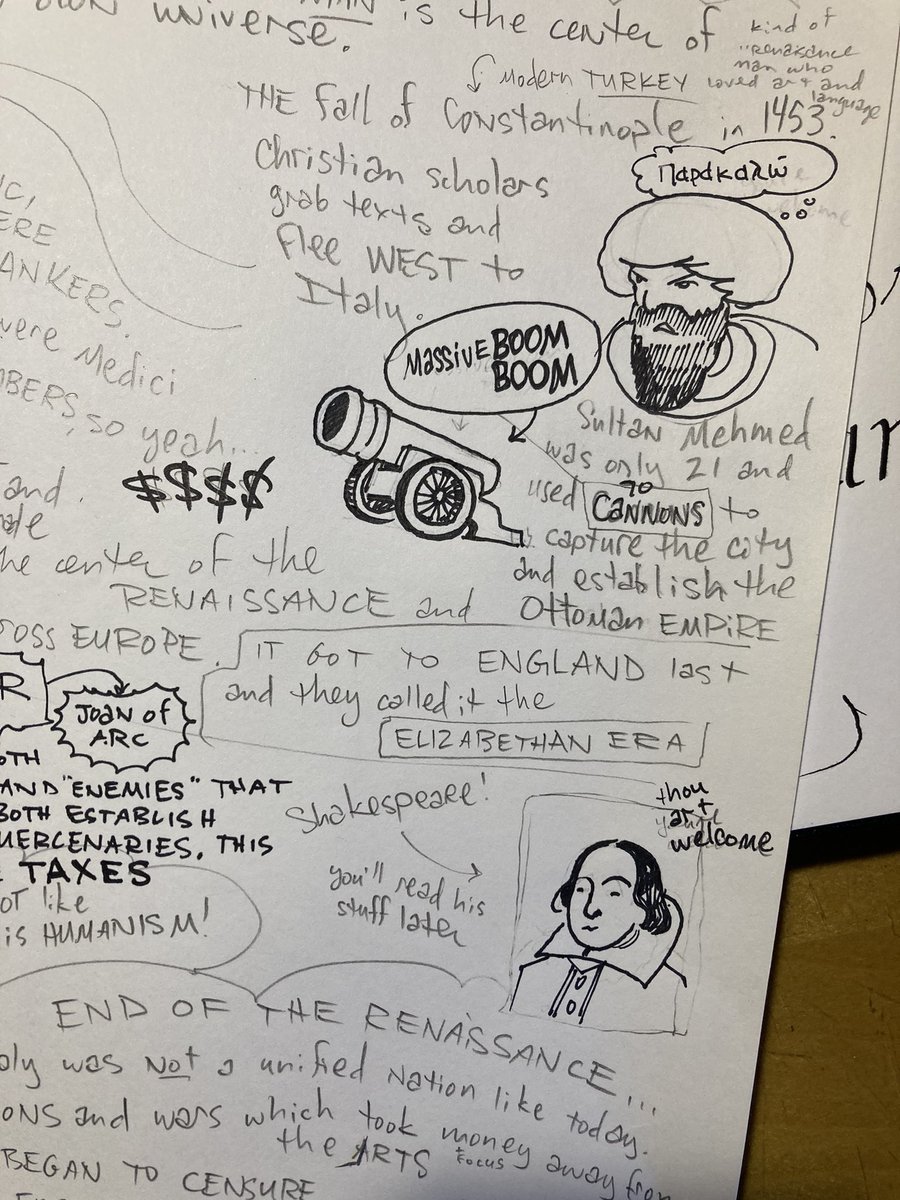 universe.
MAN is the center of
kind of
"renaissance
man who
loved art and
language
Modern TURKEY
THE Fall of Constantinople in 1453.
Christian scholars
grab texts and
Flee WEST to
Italy.
Παρακαλώ
Massive BOOM
BOOM
Sultan Mehmed
was only 21 and
used 70 CANNONS to
capture the city
and establish the
Ottoman EMPIRE
ERE
ANKERS.
were Medici
BERS, so yeah...
$$$$
and
he center of the
RENAISSANCE and
OSS EUROPE.
IT GOT TO ENGLAND last
and they called it the
ELIZABETHAN ERA
R
JOAN of
ARC
OTH
AND "ENEMIES" THAT
BOTH ESTABLISH
MERCENARIES, THIS
TAXES
OT like
is HUMANISM!
Shakespeare!
you'll read his
stuff later
thou
art
welcome
END OF THE RENAISSANCE...
aly was Not a unified Nation like today.
ONS and wars which took money away from
the ARTS focus
BEGAN TO CENSURE